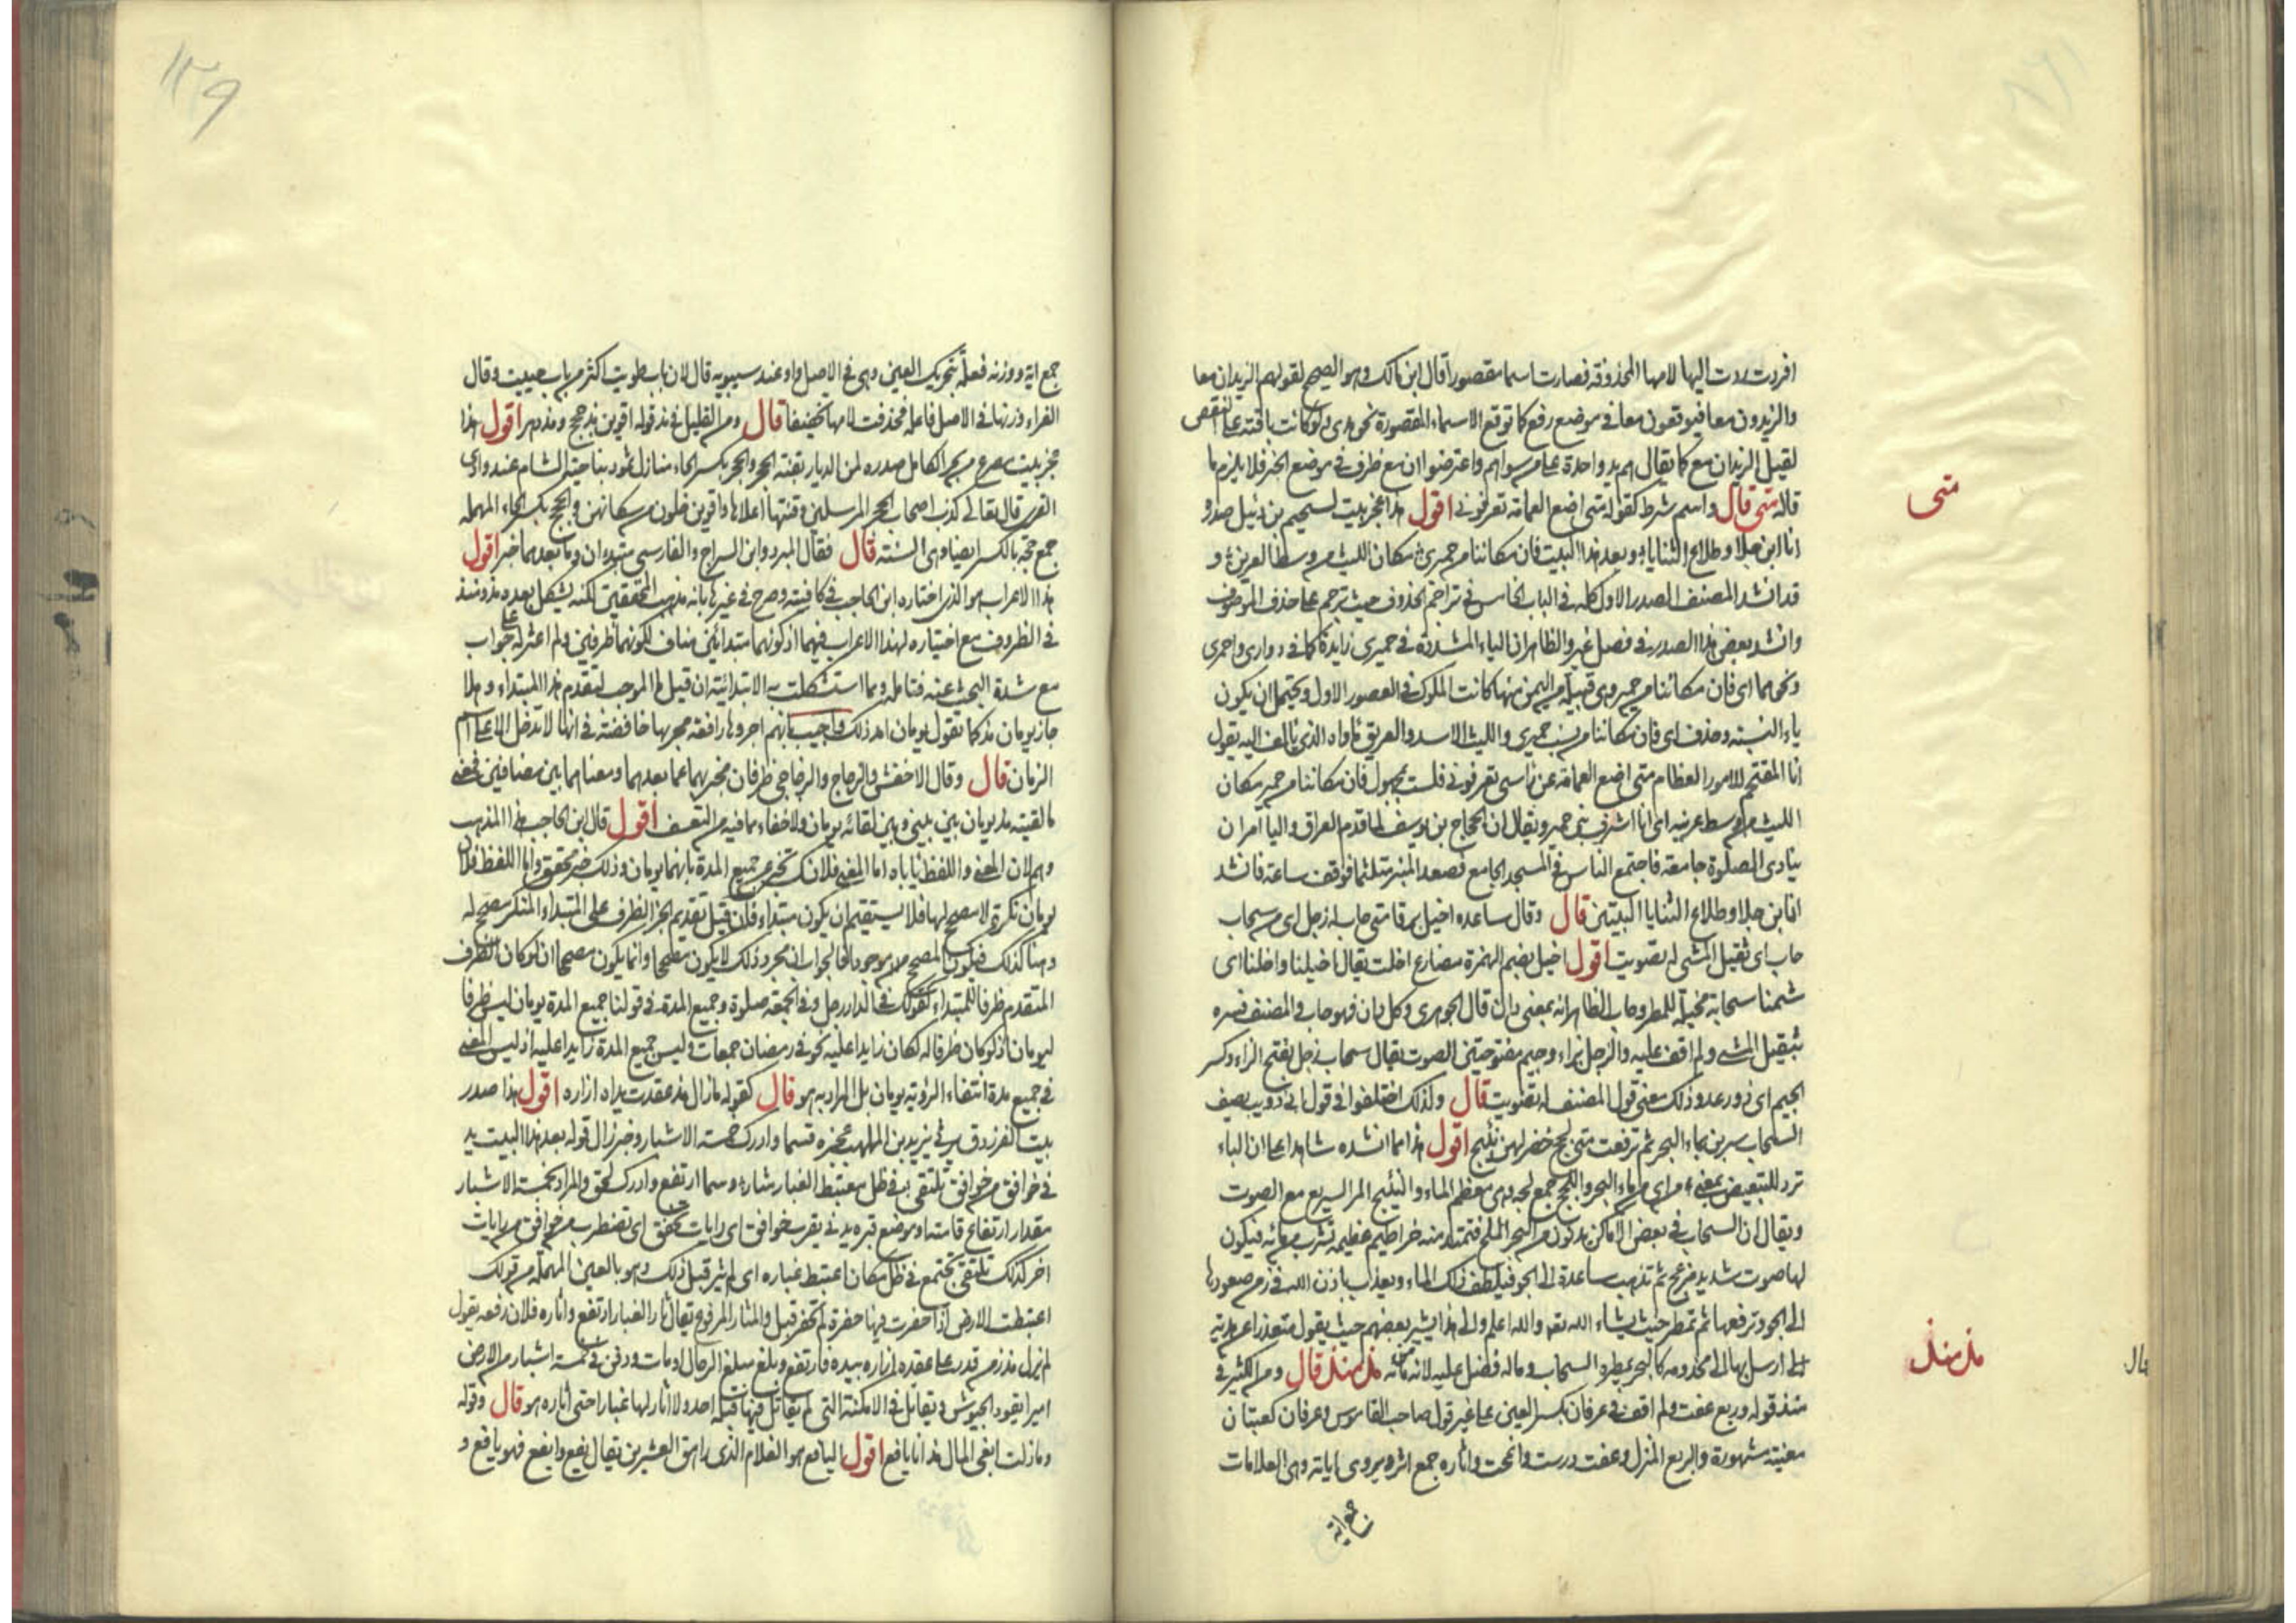 افردت ردت اليها لامها المحذوفة فصارت اسما مقصورا قال ابن مالك وهو الصحيح لقولهم الزيدان معا
والزيدون معا فيوقعون معا في موضع رفع كما توقع الاسماء المقصورة نحو هدى ولو كانت باقية على النقص
لقيل الزيدان مع كما يقال هم يد واحدة على من سواهم واعترضوا ان مع ظرف في موضع الخبر فلا يلزم ما
قاله متى قال واسم شرط كقوله متى اضع العمامة تعرفوني اقول هذا عجز بيت لسحيم بن وثيل صدره
انا ابن جلا وطلاع الثنايا وبعد هذا البيت فان مكاننا من حميري مكان الليث من وسط العرين و
قد انشد المصنف المصدر الاول كله في الباب الخامس في تراجم الحذوف حيث ترجم على حذف الموصوف
وانشد بعض هذا الصدر في فصل غير والظاهر ان الياء المشددة في حميري زايدة كما في دواري واحمري
ونحوهما اي فان مكاننا من حمير وهي قبيلة من اليمن منها كانت الملوك في العصور الاول ويحتمل ان يكون
ياء النسبة وحذف اي فان مكاننا من نسب حميري والليث الاسد والعرين مأواه الذي يألف اليه يقول
انا المقتحم للامور العظام متى اضع العمامة عن رأسي تعرفوني فلست بمجهول فان مكاننا من حمير مكان
الليث من وسط عرينه اي انا اشرف بني حمير ويقال ان الحجاج بن يوسف لما قدم العراق واليا امر ان
ينادى الصلوة جامعة فاجتمع الناس في المسجد الجامع فصعد المنبر متلثما فوقف ساعة فانشد
انا ابن جلا وطلاع الثنايا البيتين قال وقال ساعده اخيل برقا متى حاب له زجل اي من سحاب
حاب اي ثقيل المشي له تصويت اقول اخيل بضم الهمزة مضارع اخلت يقال اخيلنا واخلنا اي
شمنا سحابة مخيلة للمطر وحاب الظاهر انه بمعنى دان قال الجوهري وكل دان فهو حاب والمصنف فسره
بثقيل المشي ولم اقف عليه والزجل بزاء وجيم مفتوحتين الصوت يقال سحاب زجل بفتح الزاء وكسر
الجيم اي ذو رعد وذلك معنى قول المصنف له تصويت قال ولذلك اختلفوا في قول ابي ذويب يصف
السحاب شربن بماء البحر ثم ترفعت متى لجج خضر لهن نئيج اقول هذا مما انشده شاهدا على ان الباء
ترد للتبعيض بمعنى من اي من ماء البحر واللجج جمع لجة وهي معظم الماء والنئيج المر السريع مع الصوت
ويقال ان السحاب في بعض الاماكن يدنو من البحر الملح فتمتد منه خراطيم عظيمة تشرب من مائه فيكون
لها صوت شديد مزعج ثم تذهب صاعدة الى الجو فيلطف ذلك الماء ويعذب باذن الله في زمن صعودها
الى الجو وترفعها ثم تمطر حيث يشاء الله تعالى والله اعلم والى هذا يشير بعضهم حيث يقول معتذرا عن هدية
ارسل بها الى مخدومه كالبحر يمطره السحاب وما له فضل عليه لانه من مائه مذ منذ قال ومن الكثير في
منذ قوله وربع عفت ولم اقف في عرفان بكسر العين على غير قول صاحب القاموس وعرفان كعبتان
مغنية مشهورة والربع المنزل وعفت درست وانمحت واثاره جمع اثر ويروى آياته وهي العلامات
جمع اية
متى
مذ منذ
قال
١٣٩
جمع اية ووزنه فعلة بتحريك العين وهي في الاصل واو عند سيبويه قال لان باب طويت اكثر من باب حييت وقال
الفراء وزنها في الاصل فاعلة فحذفت لامها تخفيفا قال ومن القليل في مذ قوله اقوين مذ حجج ومذ دهر اقول هذا
عجز بيت مصرع من بحر الكامل صدره لمن الديار بقنة الحجر والحجر بكسر الحاء منازل ثمود بناحية الشام عند وادي
القرى قال تعالى كذب اصحاب الحجر المرسلين وقنتها اعلاها واقوين خلون من سكانهن والحجج بكسر الحاء المهملة
جمع حجة بالكسر ايضا وهي السنة قال فقال المبرد وابن السراج والفارسي مبتدءان وما بعدهما خبر اقول
هذا الاعراب هو الذي اختاره ابن الحاجب في كافيته وصرح في غيرها بانه مذهب المحققين لكنه يشكل بعده مذ ومنذ
في الظروف مع اختياره لهذا الاعراب فيهما اذ كونهما مبتدائين مناف لكونهما ظرفين ولم اعثر له على جواب
مع شدة البحث عنه فتامله ومما استشكلت به الابتدائية ان قيل ما الموجب لتقدم هذا المبتداء وهلا
جاز يومان مذ كما تقول يومان امد ذلك واجيب بانهم اجروها رافعة مجرىها خافضة في انها لا تدخل الا على اسم
الزمان قال وقال الاخفش والزجاج والزجاجي ظرفان مخبر بهما عما بعدهما ومعناهما بين مضافين فمعنى
ما لقيته مذ يومان بيني وبين لقائه يومان ولا خفاء بما فيه من التعسف اقول قال ابن الحاجب هذا المذهب
وهم لان المعنى واللفظ يأباه اما المعنى فلانك تخبر عن جميع المدة بانهما يومان وذلك خبر محقق واما اللفظ فلان
يومان نكرة لا مصحح لها فلا يستقيم ان يكون مبتداء فان قيل تقديم الخبر الظرف على المبتداء المنكر مصحح له
وهنا كذلك فيكون المصحح موجودا فالجواب ان مجرد ذلك لا يكون مصححا وانما يكون مصححا ان لو كان الظرف
المتقدم ظرفا للمبتداء كقولك في الدار رجل وفي الجمعة صلوة وجميع المدة في قولنا جميع المدة يومان ليس ظرفا
ليومان اذ لو كان ظرفا له لكان زايدا عليه نحو في رمضان جمعات وليس جميع المدة زايدا عليه اذ ليس المعنى
في جميع مدة انتفاء الرؤية يومان بل المراد به هو قال كقوله مازال مذ عقدت يداه ازاره اقول هذا صدر
بيت للفرزدق يرثي يزيد بن المهلب عجزه فسما وادرك خمسة الاشبار وخبر زال قوله بعد هذا البيت يد
ني خوافق من خوافق تلتقي في ظل معتبط الغبار مثار وسما ارتفع وادرك لحق والمراد بخمسة الاشبار
مقدار ارتفاع قامته او موضع قبره يدني يقرب خوافق اي رايات تخفق اي تضطرب من خوافق من رايات
اخر كذلك تلتقي تجتمع في ظل مكان اعتبط غباره اي لم يثر قبل ذلك وهو بالعين المهملة من قولك
اعتبطت الارض اذا حفرت فيها حفرة لم تحفر قبل والمثار المرفوع يقال ثار الغبار ارتفع واثاره فلان رفعه يقول
لم يزل مذ زمن قدر على عقده ازاره بيده فارتفع وبلغ مبلغ الرجال او مات ودفن في خمسة اشبار من الارض
اميرا يقود الجيوش ويقاتل في الامكنة التي لم يقاتل فيها قبله احد ولا اثار لها غبارا حتى اثاره هو قال وقوله
وما زلت ابغي المال مذ انا يافع اقول اليافع هو الغلام الذي راهق العشرين يقال يفع وايفع فهو يافع و